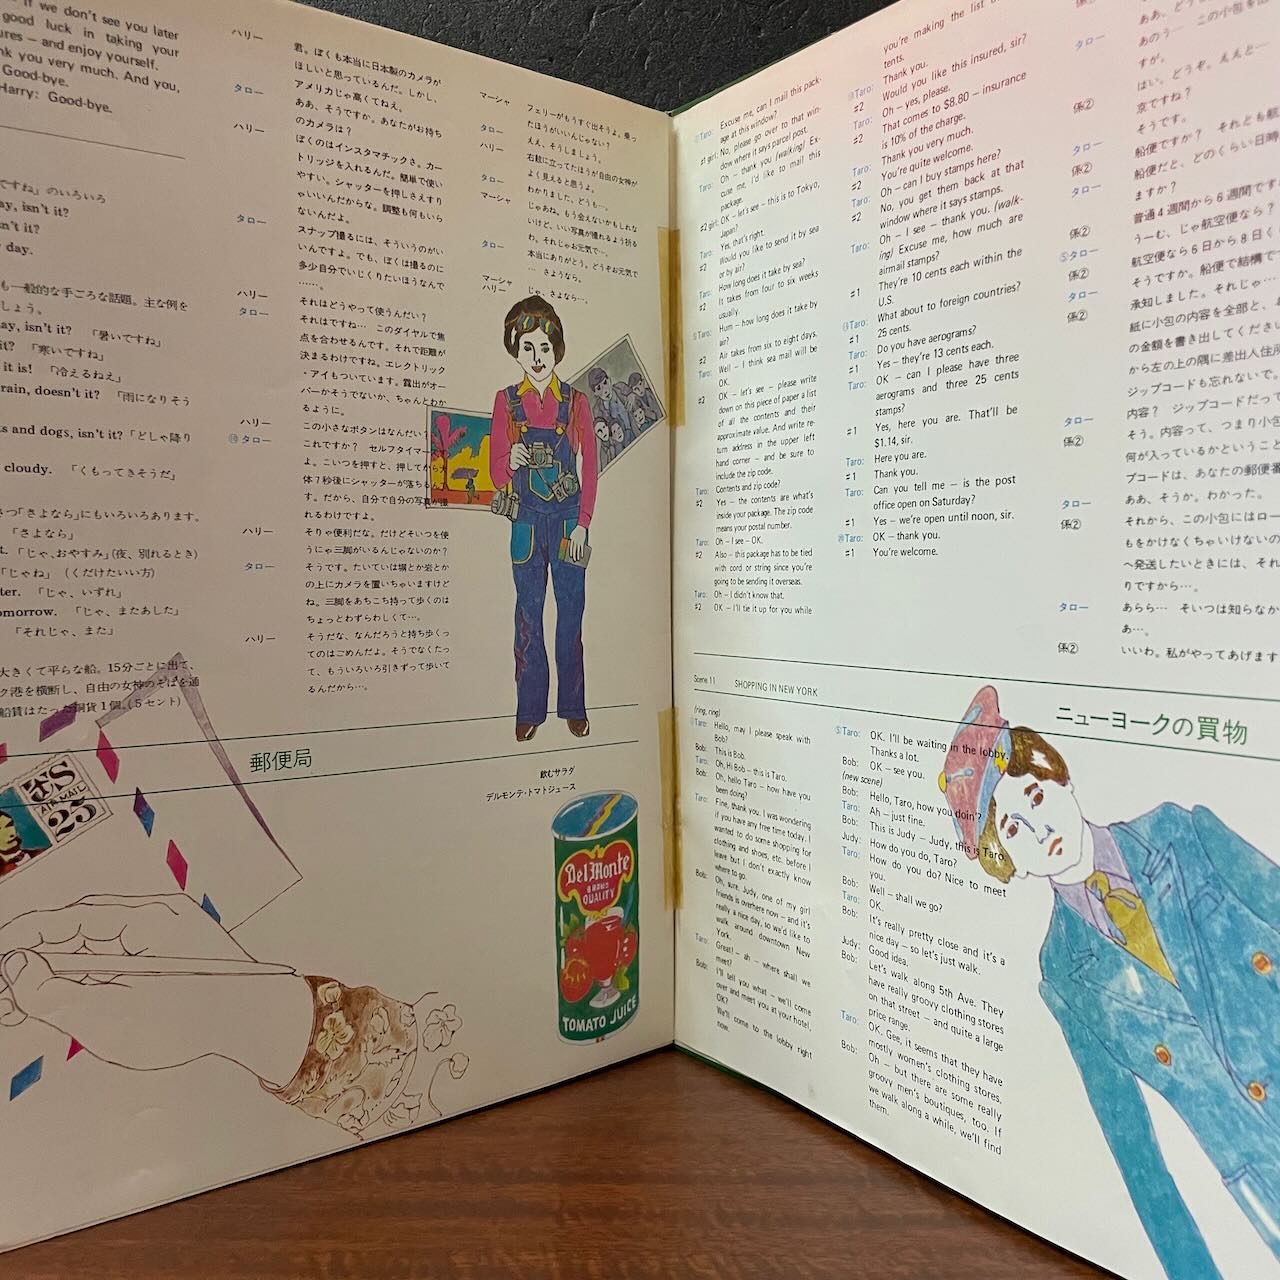 If we don't see you later
good luck in taking your
ures – and enjoy yourself.
nk you very much. And you,
Good-bye.
Harry: Good-bye.
ですね」のいろいろ
ay, isn't it?
sn't it?
day.
も一般的な手ごろな話題。主な例を
しょう。
ay, isn't it? 「暑いですね」
it? 「寒いですね」
it is! 「冷えるねえ」
rain, doesn't it? 「雨になりそう
ts and dogs, isn't it?「どしゃ降り
cloudy. 「くもってきそうだ」
さつ「さよなら」にもいろいろあります。
「さよなら」
t. 「じゃ、おやすみ」(夜、別れるとき)
「じゃね」 (くだけたいい方)
ter. 「じゃ、いずれ」
omorrow. 「じゃ、またあした」
「それじゃ、また」
大きくて平らな船。15分ごとに出て、
ク港を横断し、自由の女神のそばを通
船賃はたった銅貨1個。(5セント)
ハリー 君。ぼくも本当に日本製のカメラが
ほしいと思っているんだ。しかし、
アメリカじゃ高くてねえ。
タロー ああ、そうですか。あなたがお持ち
のカメラは?
ハリー ぼくのはインスタマチックさ。カー
トリッジを入れるんだ。簡単で使い
やすい。シャッターを押しさえすり
ゃいいんだからな。調整も何もいら
ないんだよ。
タロー スナップ撮るには、そういうのがい
いんですよ。でも、ぼくは撮るのに
多少自分でいじくりたいほうなんで
……。
ハリー それはどうやって使うんだい?
タロー それはですね… このダイヤルで焦
点を合わせるんです。それで距離が
決まるわけですね。エレクトリック
・アイもついています。露出がオー
バーかそうでないか、ちゃんとわか
るように。
ハリー この小さなボタンはなんだい?
⑩タロー これですか? セルフタイマー
よ。こいつを押すと、押してから大
体7秒後にシャッターが落ちるん
す。だから、自分で自分の写真が撮
れるわけですよ。
ハリー そりゃ便利だな。だけどそいつを使
うにゃ三脚がいるんじゃないのか?
タロー そうです。たいていは塀とか岩とか
の上にカメラを置いちゃいますけど
ね。三脚をあちこち持って歩くのは
ちょっとわずらわしくて…。
ハリー そうだな、なんだろうと持ち歩くっ
てのはごめんだよ。そうでなくたっ
て、もういろいろ引きずって歩いて
るんだから…。
マーシャ フェリーがもうすぐ出そうよ。乗っ
たほうがいいんじゃない?
タロー ええ、そうしましょう。
ハリー 右舷に立ってたほうが自由の女神が
よく見えると思うよ。
タロー わかりました。どうも…。
マーシャ じゃあね。もう会えないかもしれな
いけど、いい写真が撮れるよう祈る
わ。それじゃお元気で…。
タロー 本当にありがとう。どうぞお元気で
… さようなら。
マーシャ
ハリー じゃ、さよなら…。
郵便局
飲むサラダ
デルモンテ・トマトジュース
AIR MAIL
25
Del Monte
BRAND
QUALITY
TOMATO JUICE
①Taro: Excuse me, can I mail this pack-
age at this window?
#1 girl: No, please go over to that win-
dow where it says parcel post.
Taro: Oh – thank you (walking) Ex-
cuse me, I'd like to mail this
package.
#2 girl: OK – let's see – this is to Tokyo,
Japan?
Taro: Yes, that's right.
#2 Would you like to send it by sea
or by air?
Taro: How long does it take by sea?
#2 It takes from four to six weeks
usually.
⑤Taro: Hum – how long does it take by
air?
#2 Air takes from six to eight days.
Taro: Well – I think sea mail will be
OK.
#2 OK – let's see – please write
down on this piece of paper a list
of all the contents and their
approximate value. And write re-
turn address in the upper left
hand corner – and be sure to
include the zip code.
Taro: Contents and zip code?
#2 Yes – the contents are what's
inside your package. The zip code
means your postal number.
Taro: Oh – I see – OK.
#2 Also – this package has to be tied
with cord or string since you're
going to be sending it overseas.
Taro: Oh – I didn't know that.
#2 OK – I'll tie it up for you while
you're making the list of
tents.
⑩Taro: Thank you.
#2 Would you like this insured, sir?
Taro: Oh – yes, please.
#2 That comes to $8.80 – insurance
is 10% of the charge.
Taro: Thank you very much.
#2 You're quite welcome.
Taro: Oh – can I buy stamps here?
#2 No, you get them back at that
window where it says stamps.
Taro: Oh – I see – thank you. (walk-
ing) Excuse me, how much are
airmail stamps?
#1 They're 10 cents each within the
U.S.
⑮Taro: What about to foreign countries?
#1 25 cents.
Taro: Do you have aerograms?
#1 Yes – they're 13 cents each.
Taro: OK – can I please have three
aerograms and three 25 cents
stamps?
#1 Yes, here you are. That'll be
$1.14, sir.
Taro: Here you are.
#1 Thank you.
Taro: Can you tell me – is the post
office open on Saturday?
#1 Yes – we're open until noon, sir.
⑳Taro: OK – thank you.
#1 You're welcome.
タロー
係②
タロー
係②
タロー
係②
⑤タロー
係②
タロー
係②
タロー
係②
タロー
係②
タロー
係②
あのう… この小包を
すが。
はい。どうぞ。ええと…
京ですね?
そうです。
船便ですか? それとも航
船便だと、どのくらい日時
ますか?
普通4週間から6週間です
うーむ、じゃ航空便なら?
航空便なら6日から8日く
そうですか。船便で結構で
承知しました。それじゃ…
紙に小包の内容を全部と、
の金額を書き出してください
から左の上の隅に差出人住所
ジップコードも忘れないで。
内容? ジップコードだって
そう。内容って、つまり小包
何が入っているかということ
プコードは、あなたの郵便番
ああ、そうか。わかった。
それから、この小包にはロー
もをかけなくちゃいけないの
へ発送したいときには、それ
りですから…。
あらら… そいつは知らなか
あ…。
いいわ。私がやってあげます
Scene 11 SHOPPING IN NEW YORK
ニューヨークの買物
(ring, ring)
①Taro: Hello, may I please speak with
Bob?
Bob: This is Bob.
Taro: Oh, Hi Bob – this is Taro.
Bob: Oh, hello Taro – how have you
been doing?
Taro: Fine, thank you. I was wondering
if you have any free time today. I
wanted to do some shopping for
clothing and shoes, etc. before I
leave but I don't exactly know
where to go.
Bob: Oh, sure. Judy, one of my girl
friends is over here now – and it's
really a nice day, so we'd like to
walk around downtown New
York.
Taro: Great! – ah – where shall we
meet?
Bob: I'll tell you what – we'll come
over and meet you at your hotel,
OK?
We'll come to the lobby right
now.
⑤Taro: OK. I'll be waiting in the lobby.
Thanks a lot.
Bob: OK – see you.
(new scene)
Bob: Hello, Taro, how you doin'?
Taro: Ah – just fine.
Bob: This is Judy – Judy, this is Taro.
Judy: How do you do, Taro?
Taro: How do you do? Nice to meet
you.
Bob: Well – shall we go?
Taro: OK.
Bob: It's really pretty close and it's a
nice day – so let's just walk.
Judy: Good idea.
Bob: Let's walk along 5th Ave. They
have really groovy clothing stores
on that street – and quite a large
price range.
Taro: OK. Gee, it seems that they have
mostly women's clothing stores.
Bob: Oh – but there are some really
groovy men's boutiques, too. If
we walk along a while, we'll find
them.